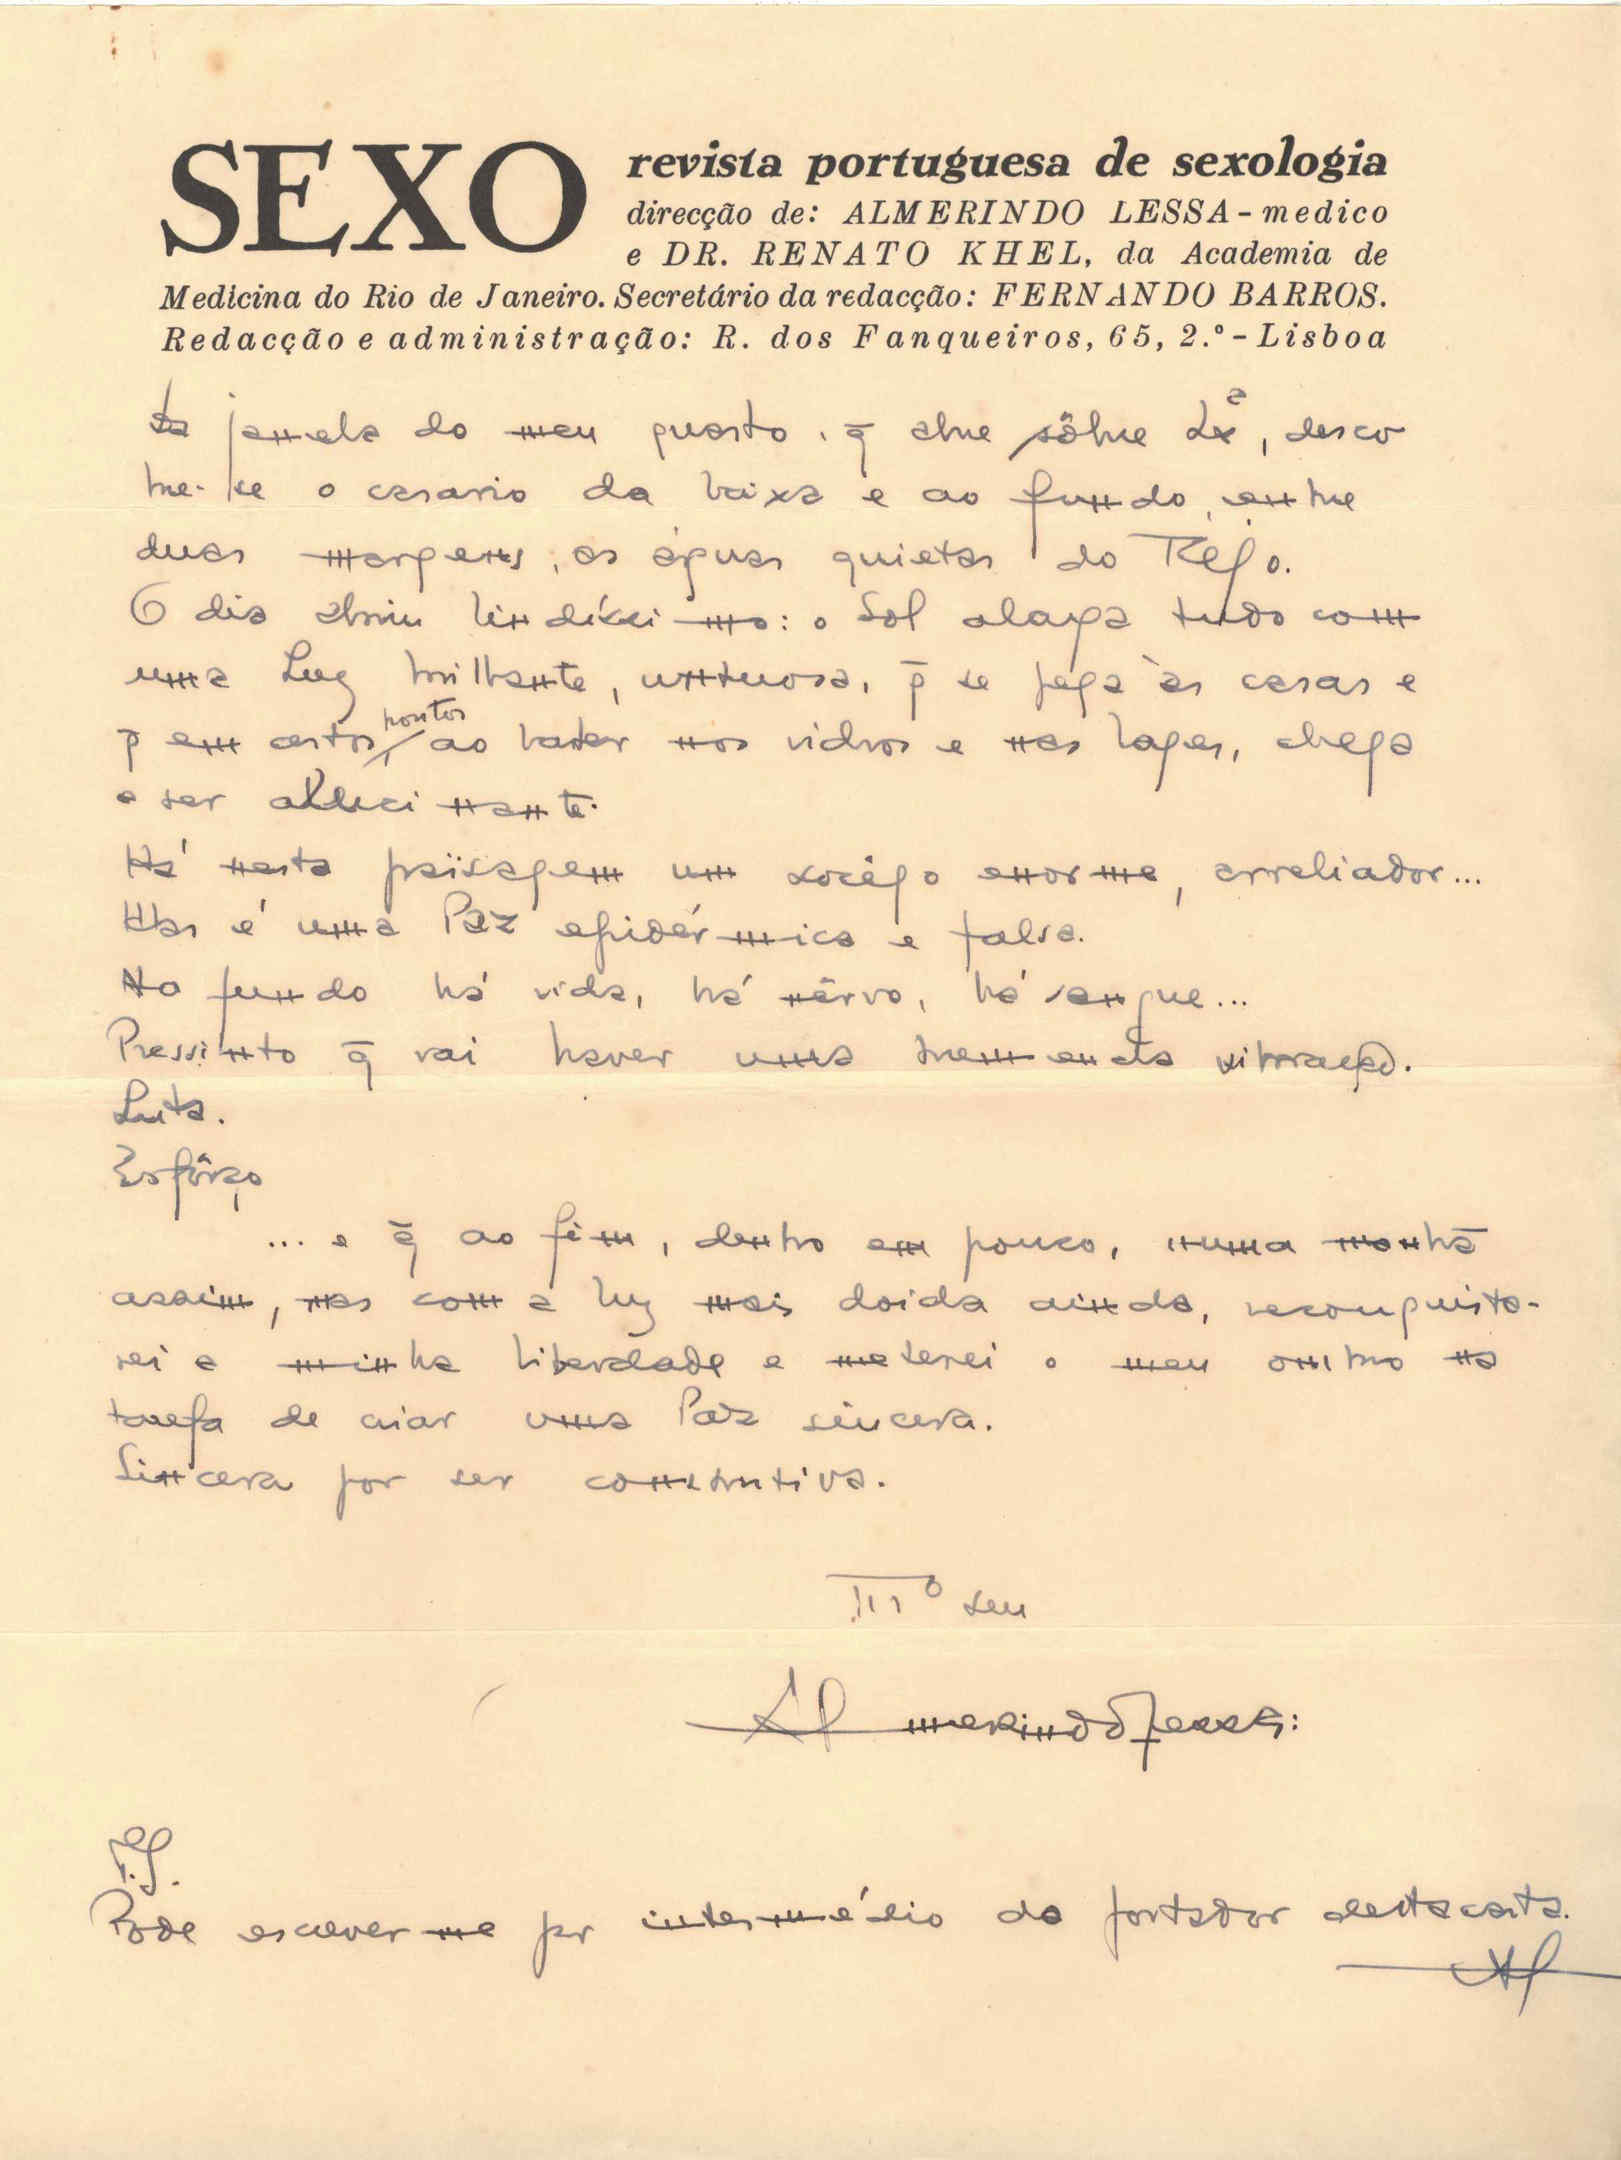 SEXO revista portuguesa de sexologia
direcção de: ALMERINDO LESSA - medico
e DR. RENATO KHEL, da Academia de
Medicina do Rio de Janeiro. Secretário da redacção: FERNANDO BARROS.
Redacção e administração: R. dos Fanqueiros, 65, 2.º - Lisboa
Da janela do meu quarto, q̄ abre sôbre Lxª, desco
bre-se o casario da baixa e ao fundo, entre
duas margens, as águas quietas do Tejo.
O dia abriu lindíssimo: o Sol alaga tudo com
uma Luz brilhante, untuosa, q̄ se pega às casas e
q̄ em certos pontos ao bater nos vidros e nas lages, chega
a ser alucinante.
Há nesta païsagem um socêgo enorme, arreliador...
Mas é uma Paz epidérmica e falsa.
No fundo há vida, há nêrvo, há sangue...
Pressinto q̄ vai haver uma tremenda vibração.
Luta.
Esfôrço
... e q̄ ao fim, dentro em pouco, numa manhã
assim, mas com a luz mais doida ainda, reconquista-
rei a minha liberdade e meterei o meu ombro na
tarefa de criar uma Paz sincera.
Sincera por ser construtiva.
seu
Almerindo Lessa:
P.S.
Pode escrever-me por intermédio do portador desta carta.
AL